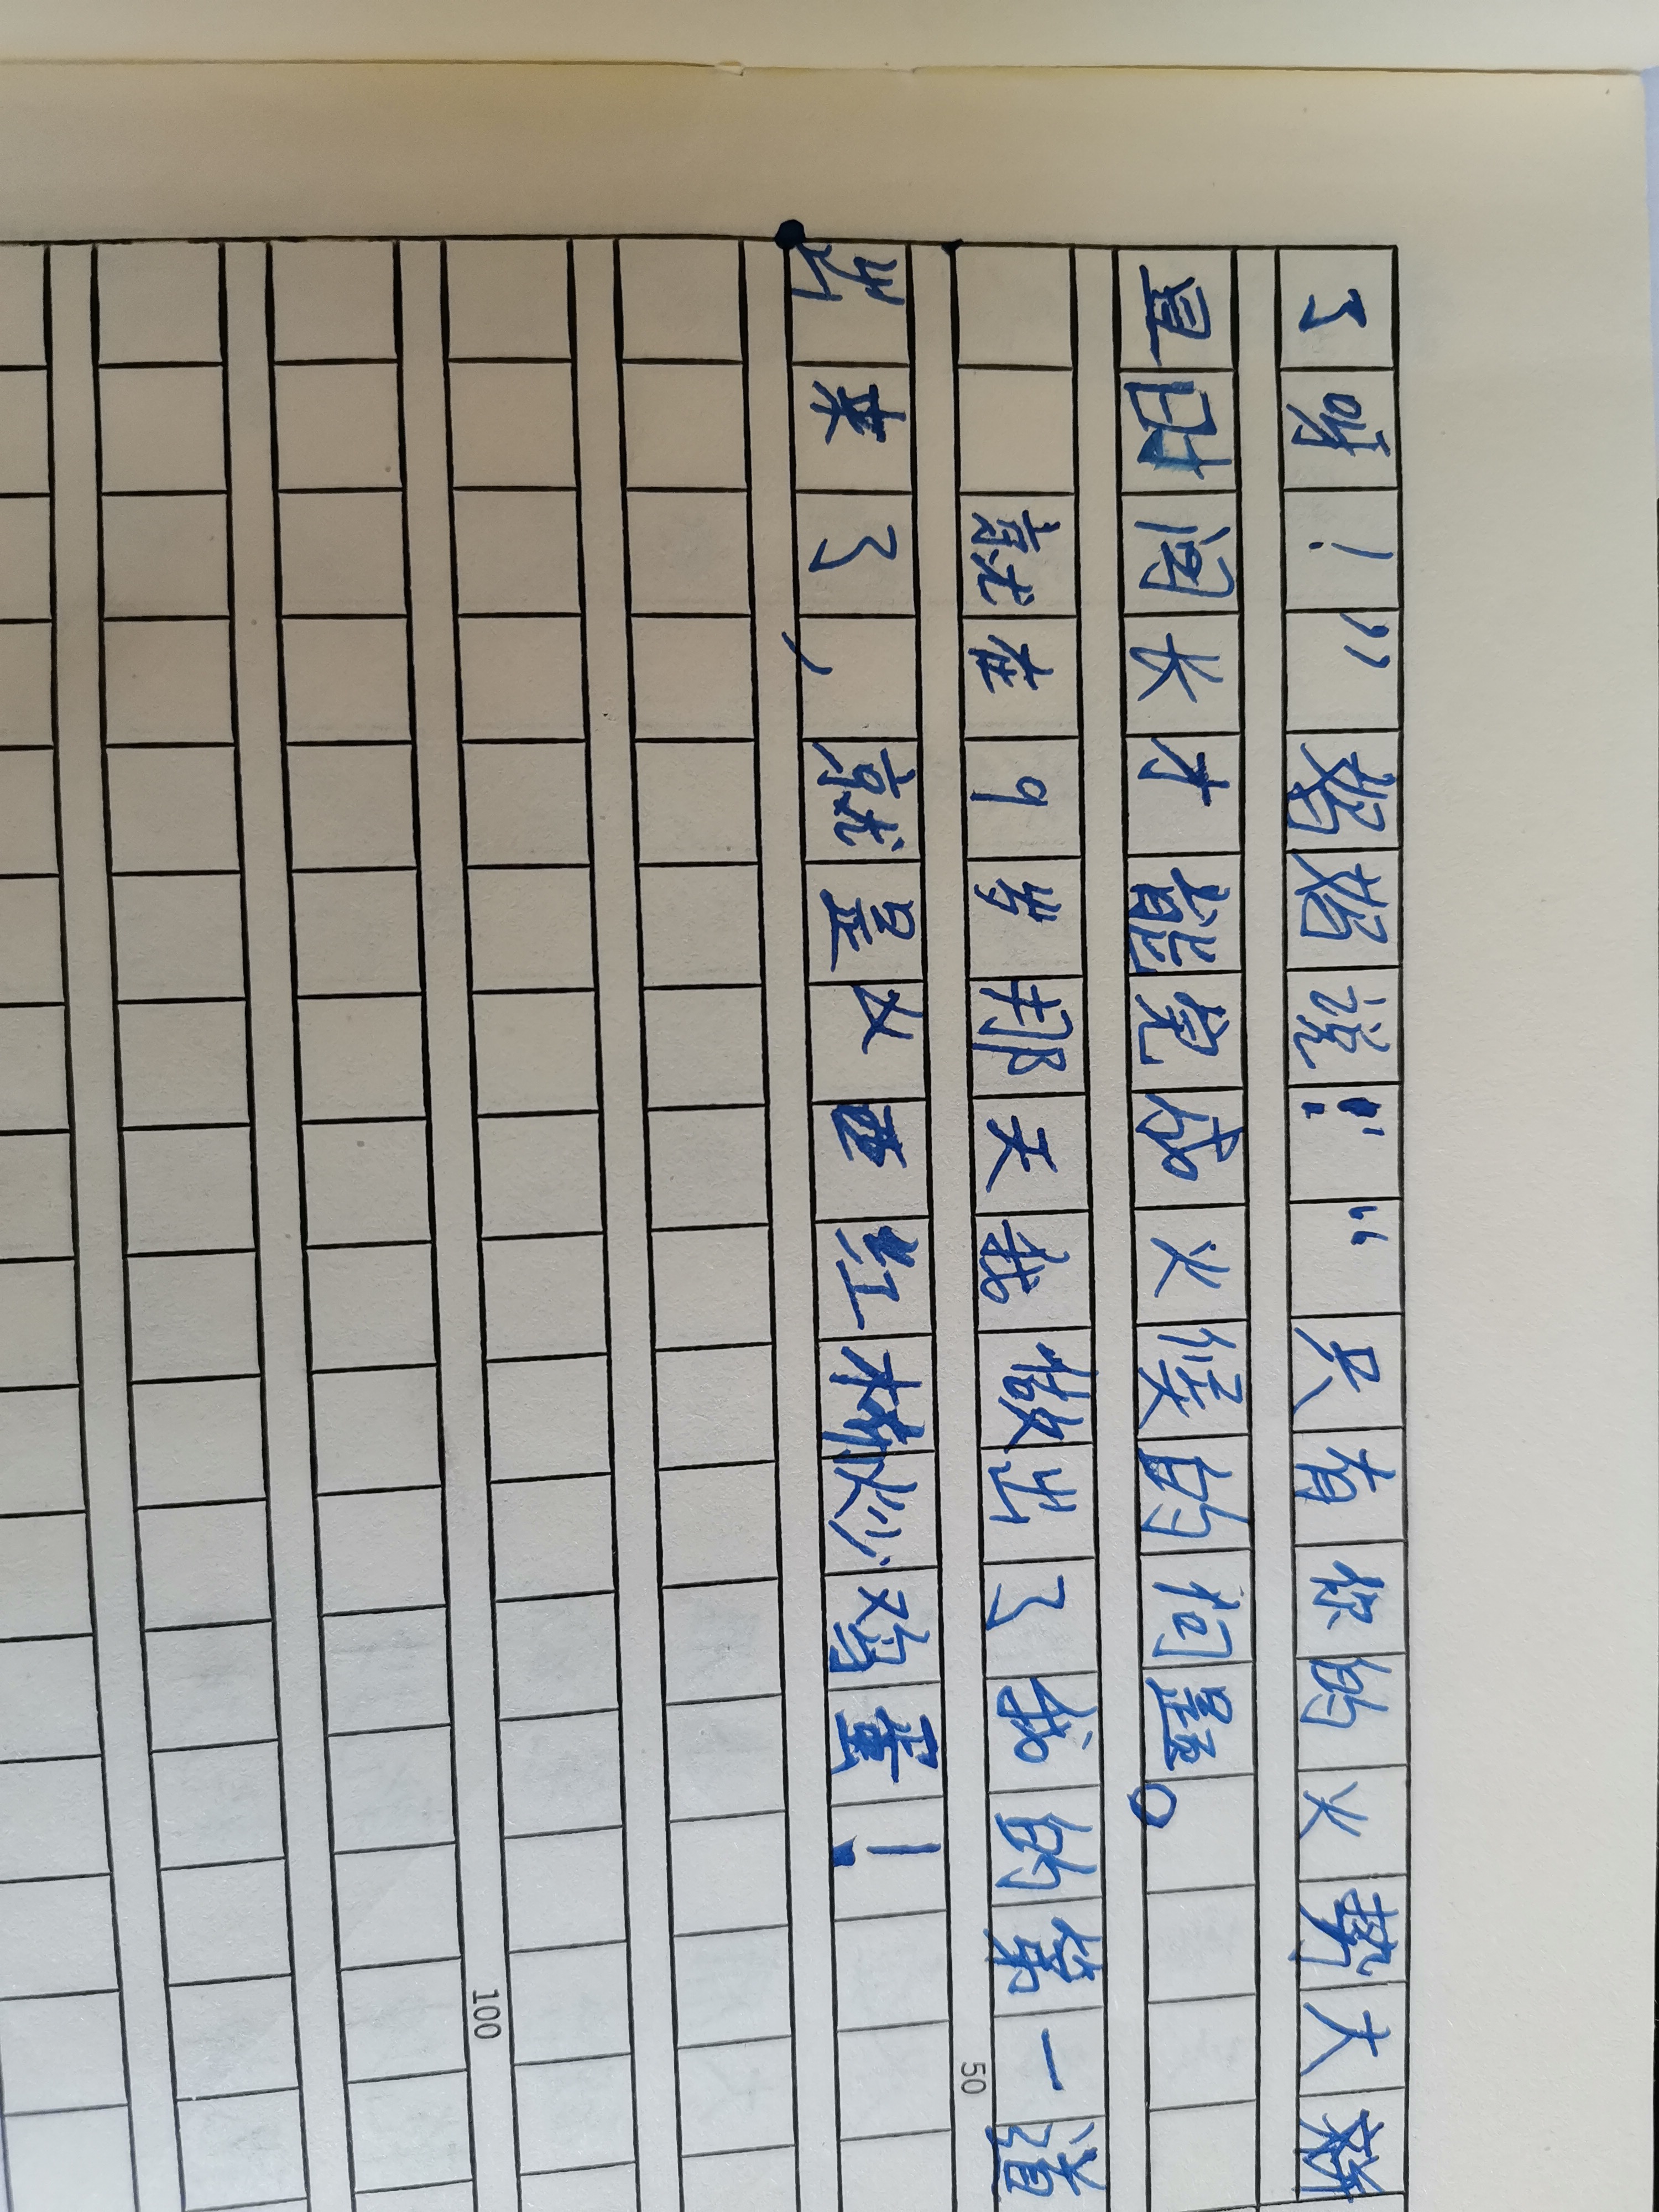 了呀！”说：“只有你的火势大
且时间长才能完成火候的问题。
就在9岁那天我做出了我的第一道
出来了，就是西红柿炒鸡蛋！
50
100